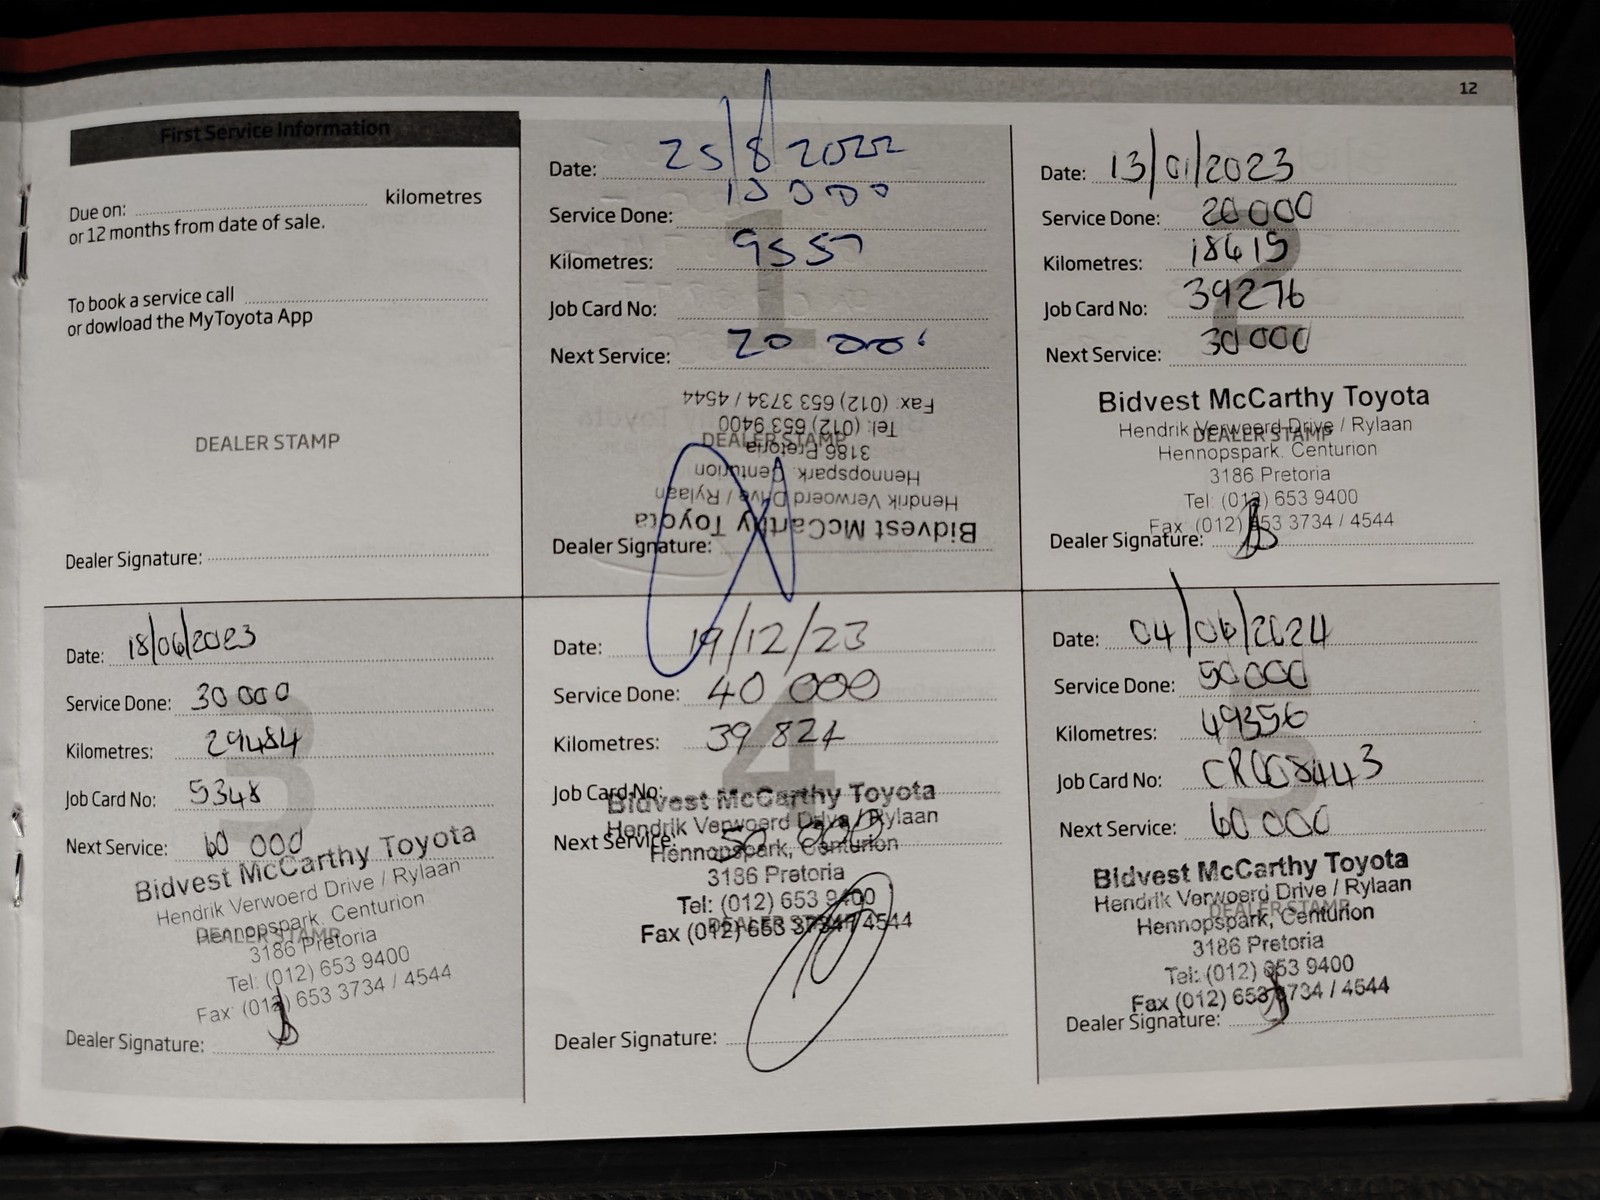 12
First Service Information
Due on: kilometres
or 12 months from date of sale.
To book a service call
or dowload the MyToyota App
DEALER STAMP
Dealer Signature:
Date: 25/8/2022
Service Done: 10 000
Kilometres: 9557
Job Card No:
Next Service: 20 000
Bidvest McCarthy Toyota
Hendrik Verwoerd Drive / Rylaan
Hennopspark. Centurion
3186 Pretoria
Tel: (012) 653 9400
Fax: (012) 653 3734 / 4544
DEALER STAMP
Dealer Signature:
Date: 13/01/2023
Service Done: 20000
Kilometres: 18615
Job Card No: 39276
Next Service: 30000
Bidvest McCarthy Toyota
Hendrik Verwoerd Drive / Rylaan
DEALER STAMP
Hennopspark. Centurion
3186 Pretoria
Tel: (012) 653 9400
Fax: (012) 653 3734 / 4544
Dealer Signature:
3
Date: 18/06/2023
Service Done: 30 000
Kilometres: 29484
Job Card No: 5348
Next Service: 60 000
Bidvest McCarthy Toyota
Hendrik Verwoerd Drive / Rylaan
Hennopspark. Centurion
DEALER STAMP
3186 Pretoria
Tel: (012) 653 9400
Fax: (012) 653 3734 / 4544
Dealer Signature:
4
Date: 19/12/23
Service Done: 40 000
Kilometres: 39 824
Job Card No:
Bidvest McCarthy Toyota
Hendrik Verwoerd Drive / Rylaan
Next Service: 50 000
Hennopspark, Centurion
3186 Pretoria
Tel: (012) 653 9400
DEALER STAMP
Fax (012) 653 3734 / 4544
Dealer Signature:
5
Date: 04/06/2024
Service Done: 50000
Kilometres: 49356
Job Card No: CR008443
Next Service: 60 000
Bidvest McCarthy Toyota
Hendrik Verwoerd Drive / Rylaan
DEALER STAMP
Hennopspark, Centurion
3186 Pretoria
Tel: (012) 653 9400
Fax (012) 653 3734 / 4544
Dealer Signature:
1
2